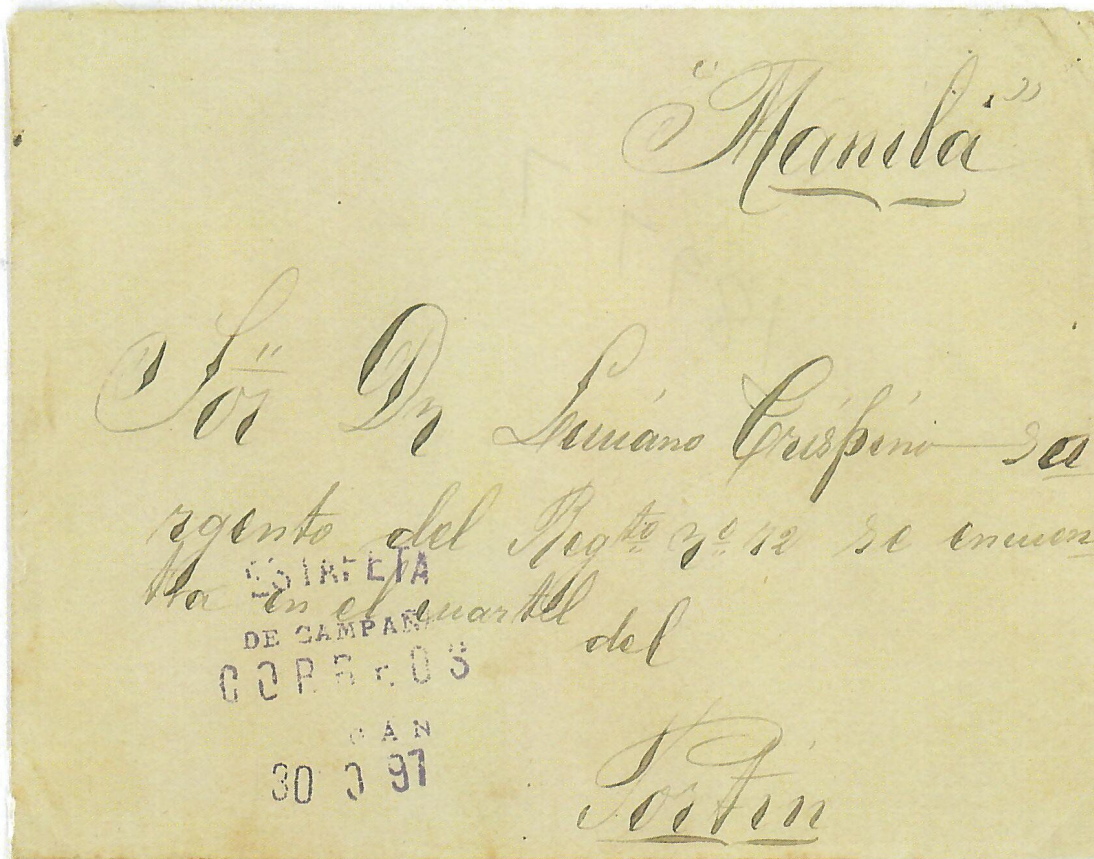 "Manila"
Sor Dn Luciano Crispino sa
rgento del Regto No 72 se encuen
tra en el cuartel
del
Fortin
ESTAFETA
DE CAMPAÑA
CORREOS
30 97